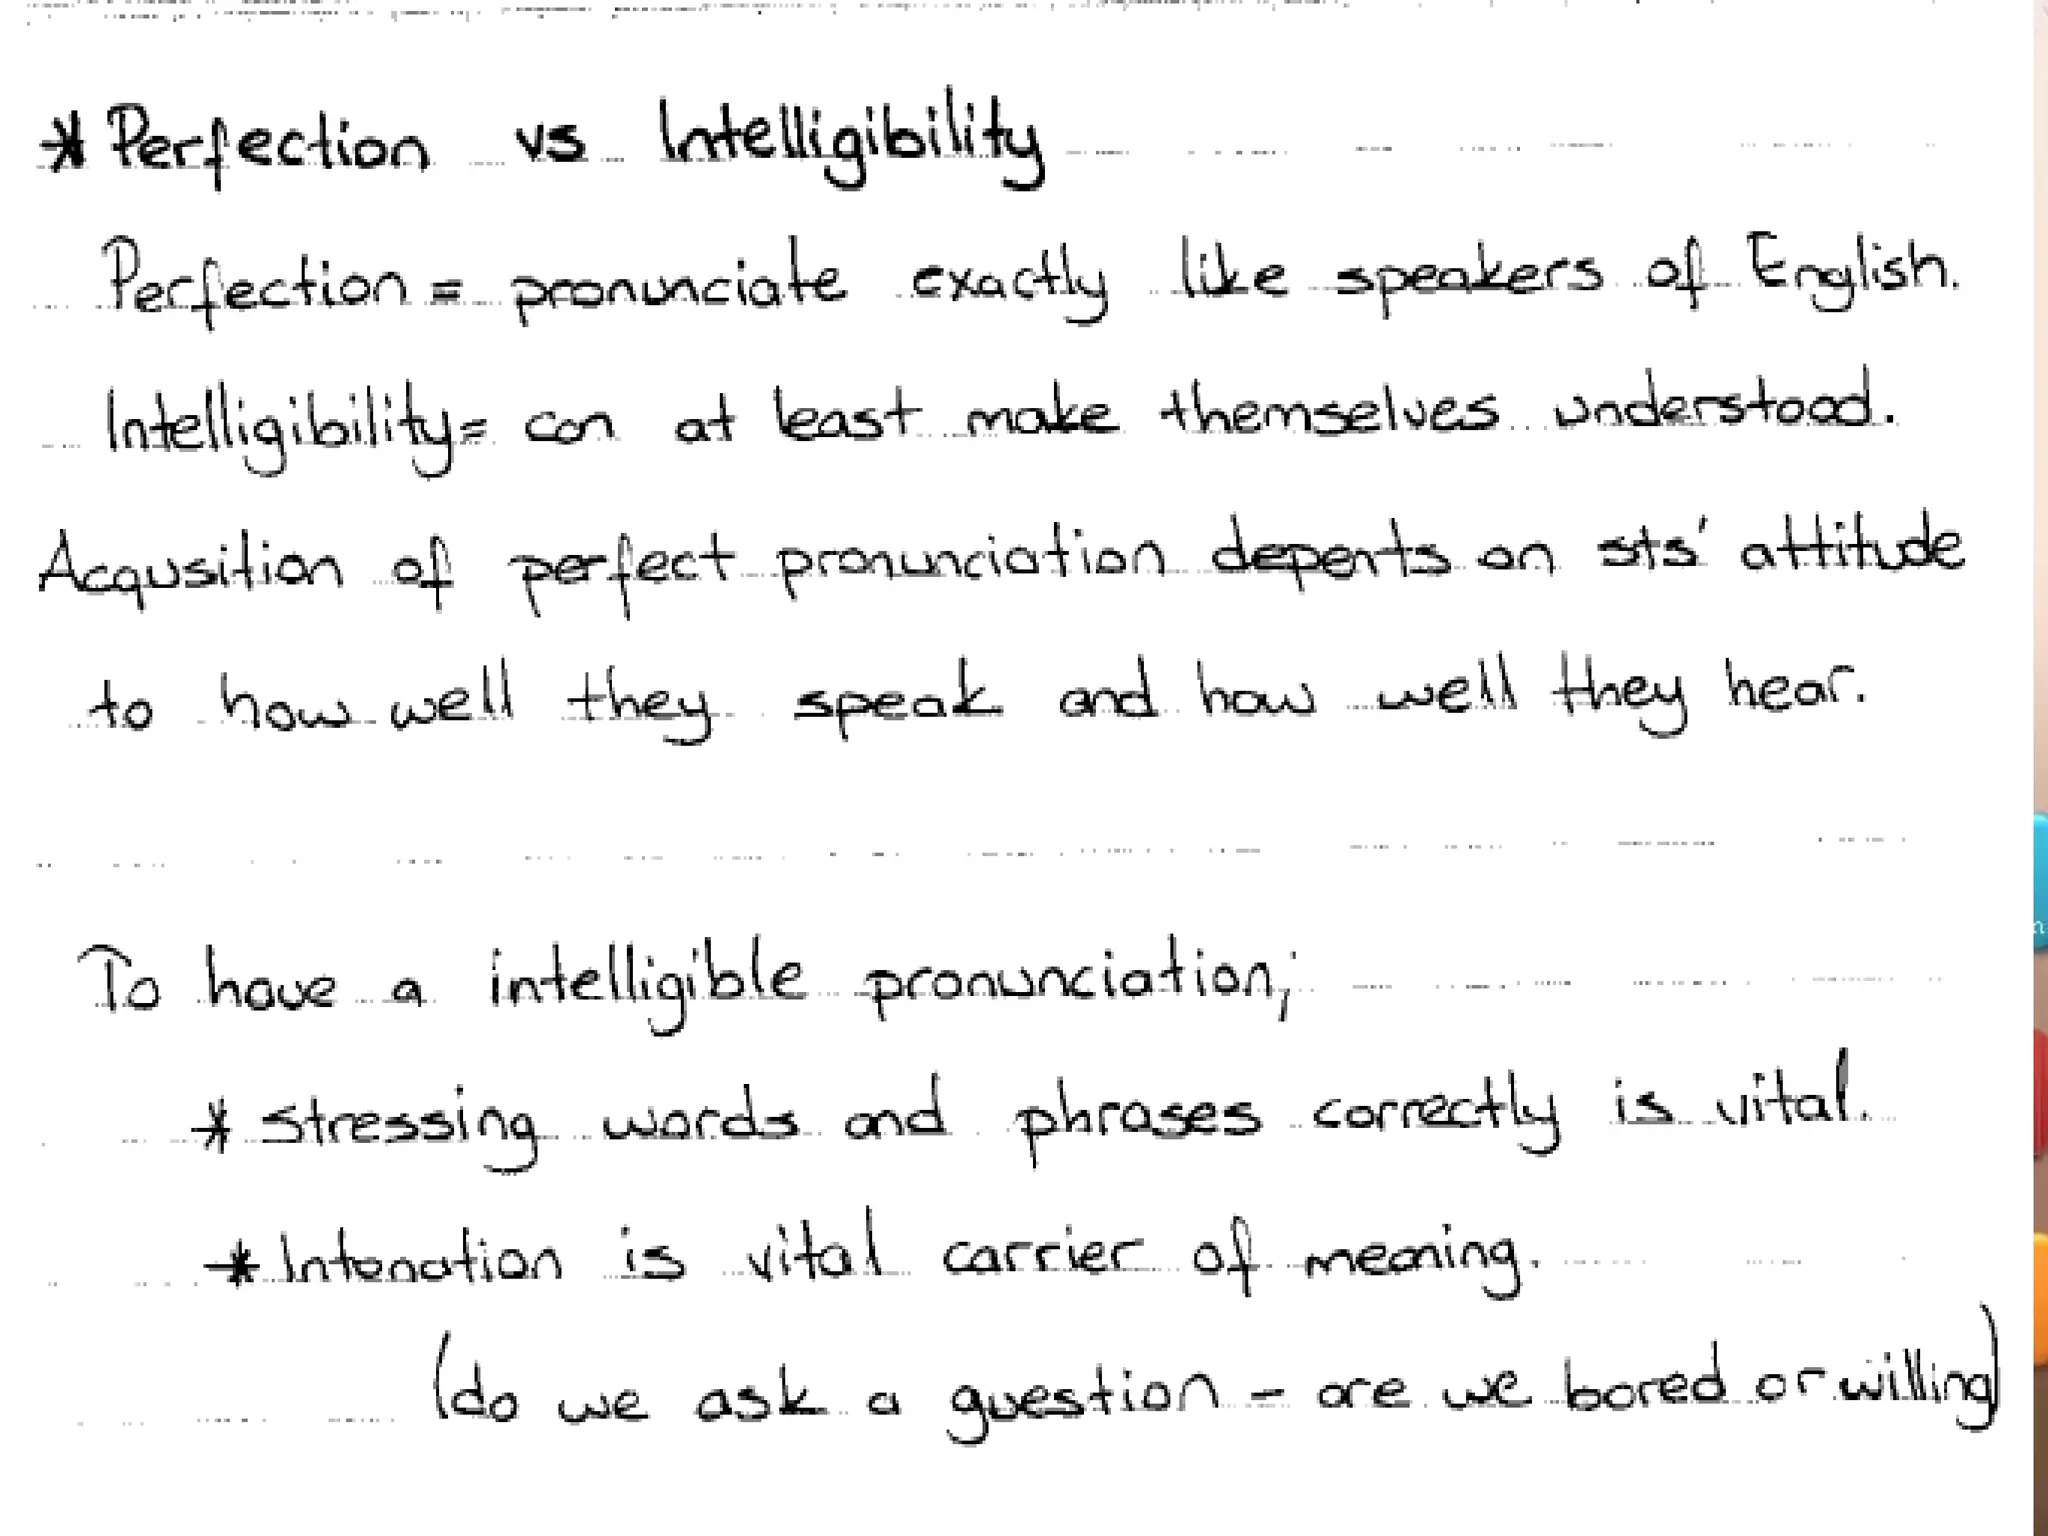 * Perfection vs Intelligibility
Perfection = pronunciate exactly like speakers of English.
Intelligibility = can at least make themselves understood.
Acqusition of perfect pronunciation depents on sts' attitude
to how well they speak and how well they hear.
To have a intelligible pronunciation;
* Stressing words and phrases correctly is vital.
* Intonation is vital carrier of meaning.
(do we ask a question - are we bored or willing)